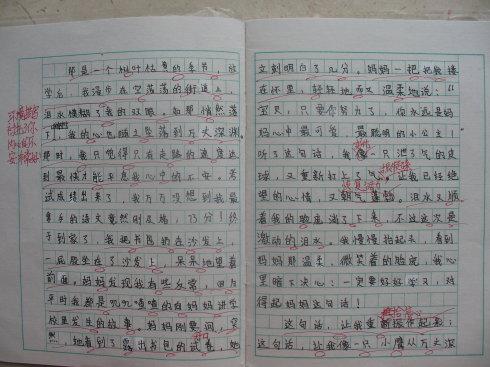 那是一个树叶枯黄的季节，放
学后，我漫步在空荡荡的街道上，
泪水模糊了我的双眼，如那悄然落
下，我的心也随之坠落到万丈深渊。
那时，我只觉得只有走路的速度达
到最快才能平息我心中的不安。考
试成绩出来了，我万万没想到我最
拿手的语文竟然刚及格，73分！终
于到家了，我把书包扔在沙发上，
一屁股坐在了沙发上，呆呆地望着
前面。妈妈发现我有些反常，因为
平时我都是叽叽喳喳的向妈妈讲学
校里发生的故事。妈妈刚要问，突
然，她看到了露出书包的试卷，她
立刻明白了几分。妈妈一把把我搂
在怀里，轻轻地而又温柔地说：“
宝贝，只要你努力了，你永远是妈
妈心中最可爱、最聪明的小公主！”
听了这句话，我像一只泄了气的皮
球，又重新打上了气。让我已经绝
望的心情，又朝气蓬勃。泪水又顺
着我的脸庞滴了下来，不过这次是
激动的泪水。我慢慢抬起头，看到
妈妈那温柔、微笑着的脸庞，我心
里暗下决心：一定要好好学习，对
得起妈妈这句话！
这句话，让我重新振作起来；
这句话，让我像一只小鹰从万丈深